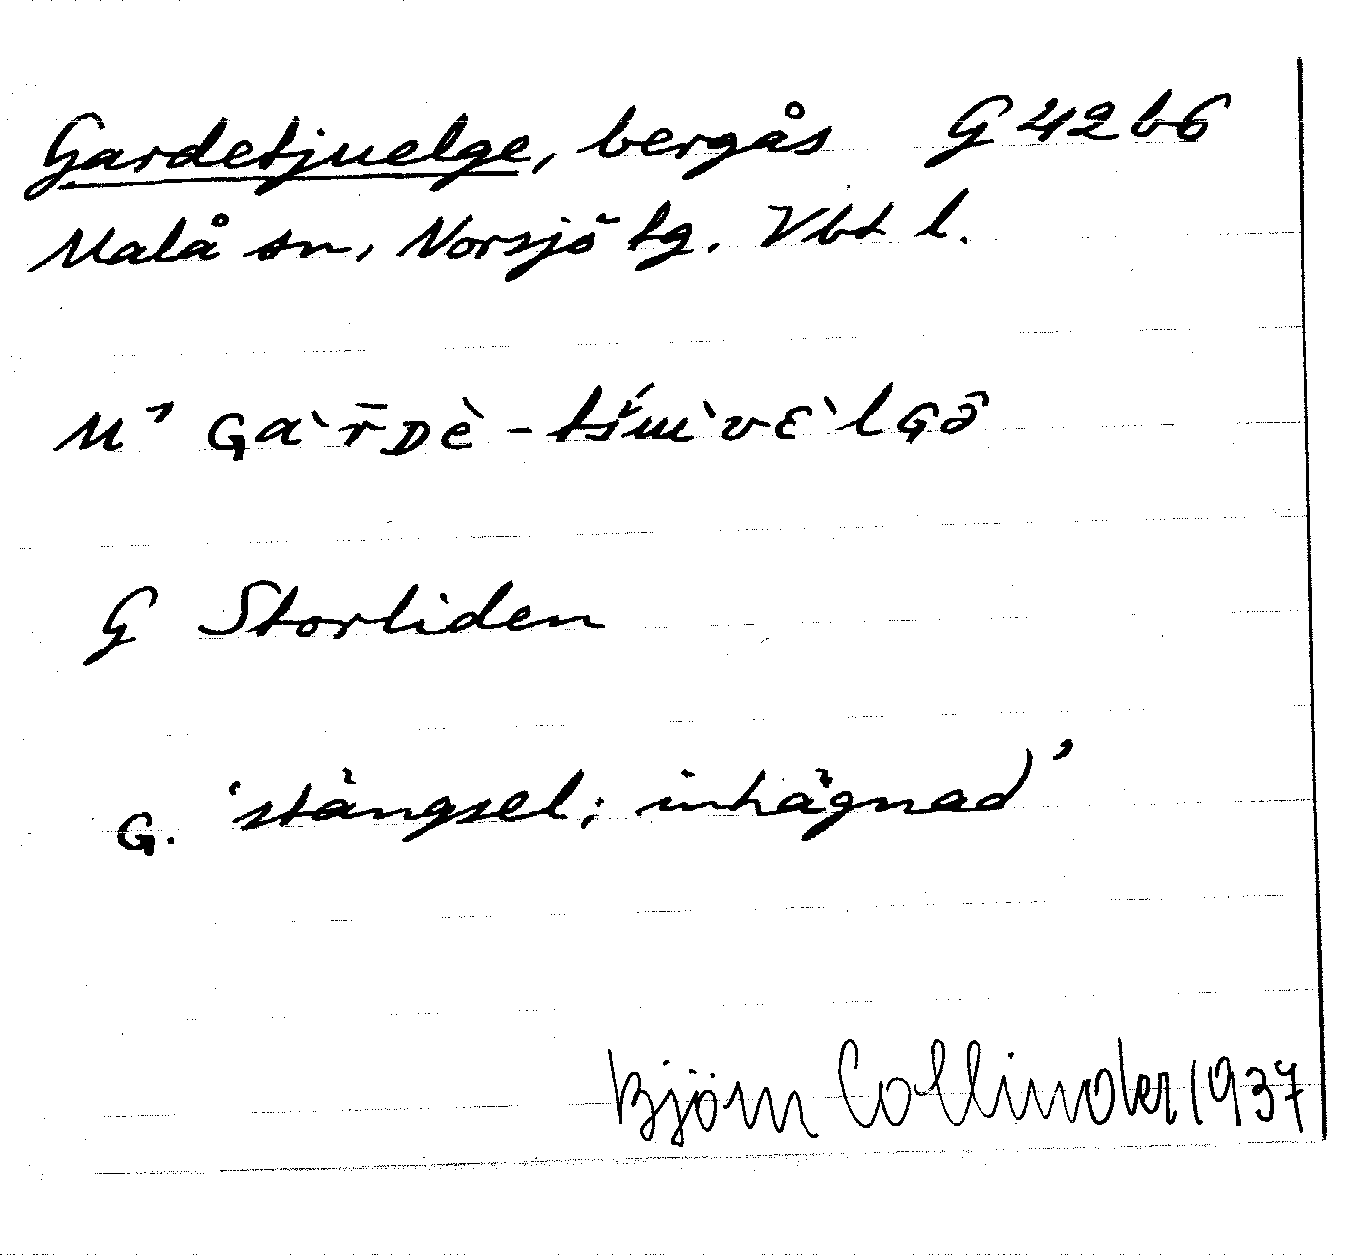 Gardetjuelge, bergås G 42 b6
Malå sn, Norsjö tg. Vbt l.
M⁷ Gàr̄Dè - tśɯ̀vɛ̀lGə̑
G Storliden
G. 'stängsel; inhägnad'
Björn Collinder 1937